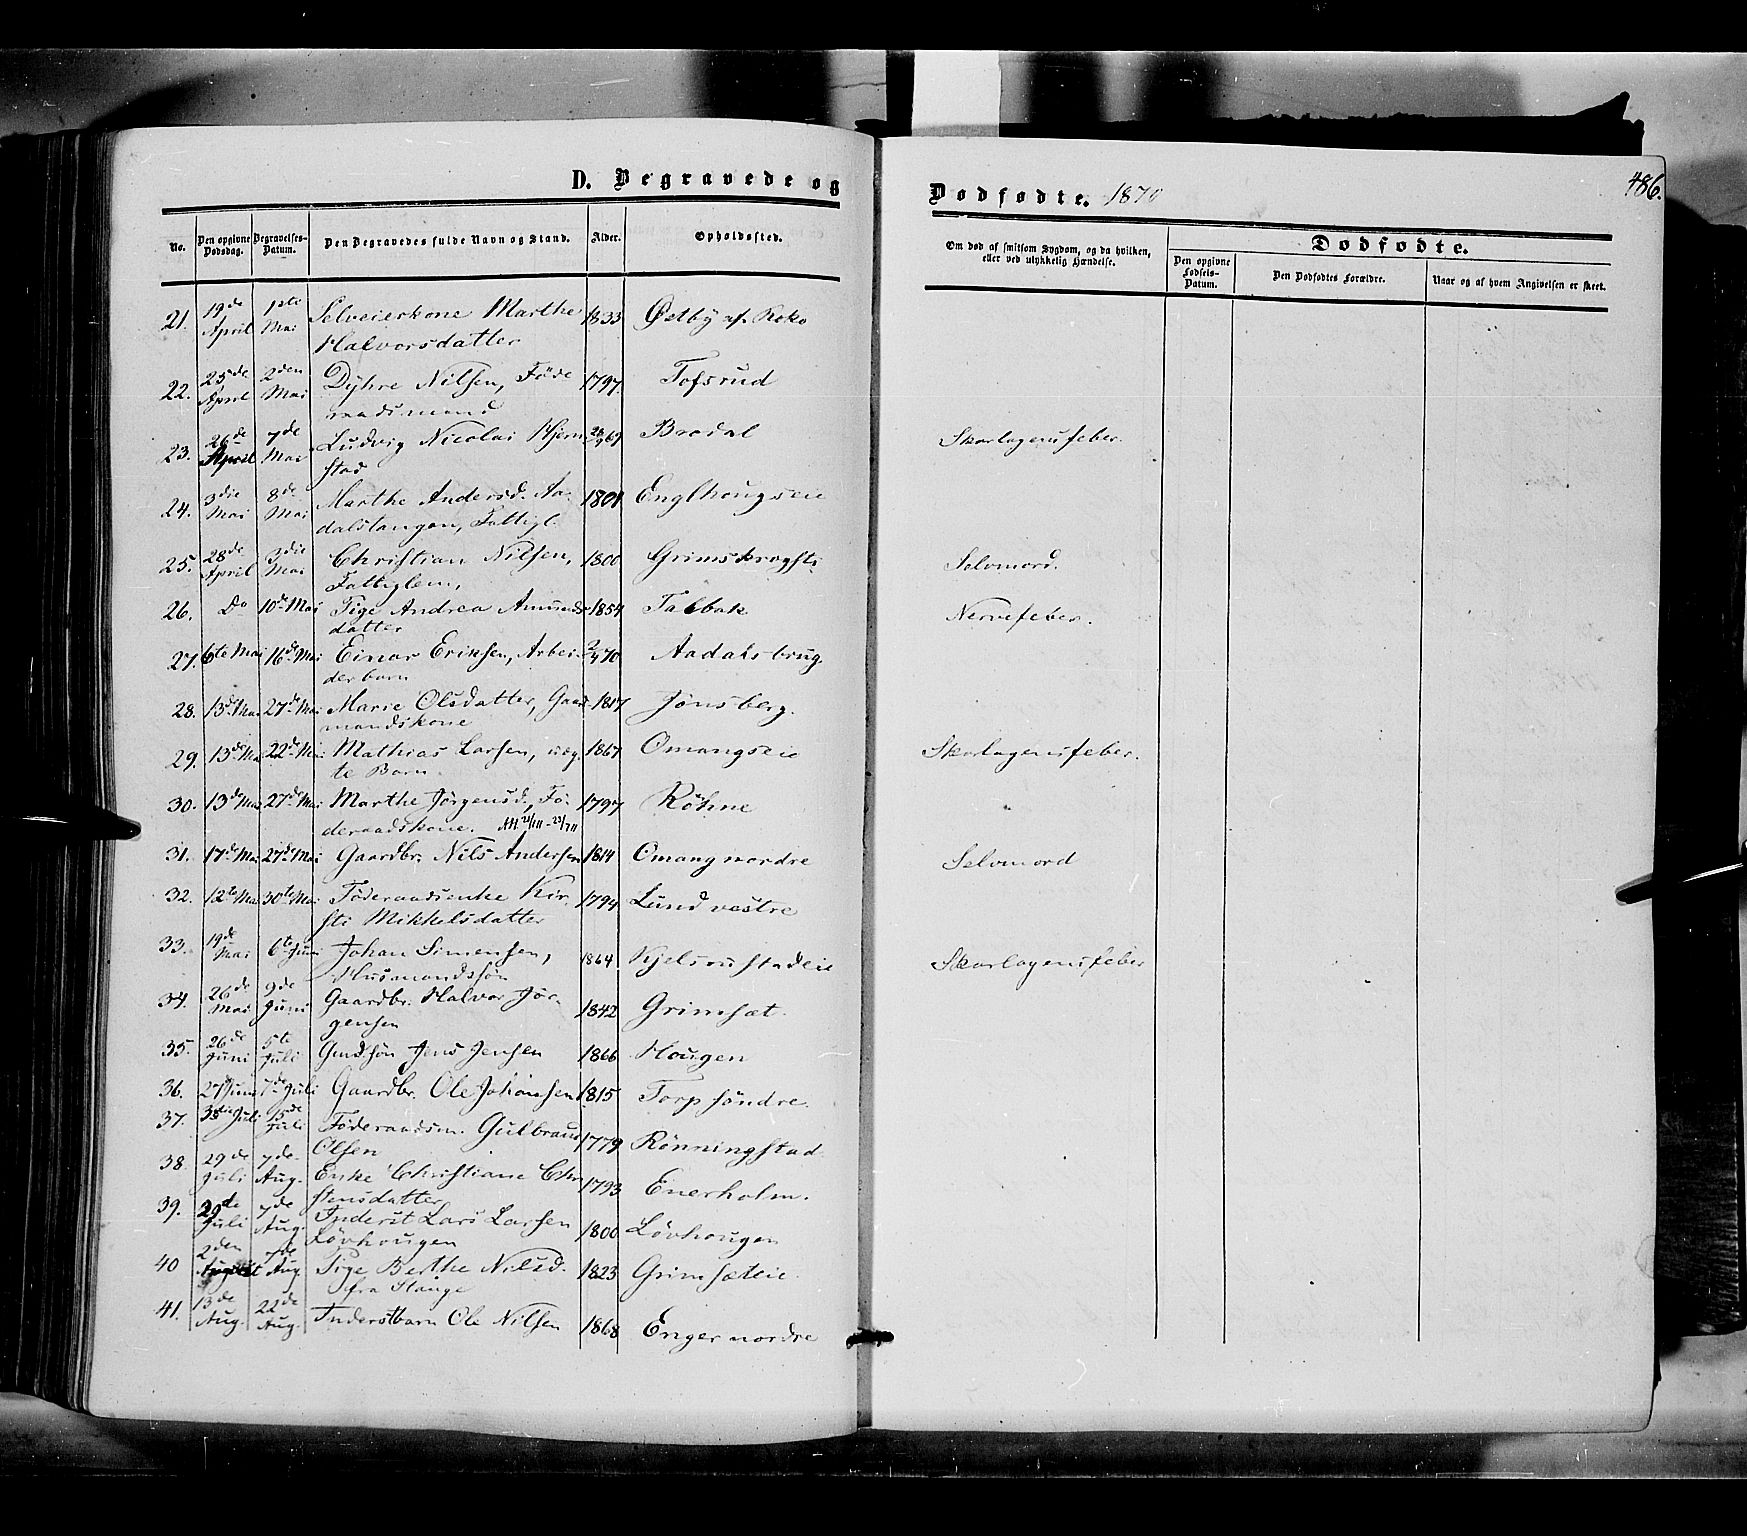 D. Begravede og
Dødfødte. 1870
486.
No. Den opgivne Dødsdag. Begravelses-Datum. Den Begravedes fulde Navn og Stand. Alder. Opholdssted.
Om død af smitsom Sygdom, og da hvilken, eller ved ulykkelig Hændelse.
Dødfødte.
Den opgivne Fødsels-Datum. Den Dødfødtes Forældre. Naar og af hvem Angivelsen er skeet.
21. 19de April 1ste Mai Selveierkone Marthe 1833 Østby af Roko
Halvorsdatter
22. 25de April 2den Mai Dyhre Nilsen, Føde 1797. Tofsrud
raadsmand
23. 26de April 7de Mai Ludvig Nicolai Hjern 69 Brodal Skarlagensfeber.
stad
24. 3die Mai 8de Mai Marthe Andersd. Aa- 1801 Englhougseie
dalstangen, Fattigl.
25. 28de April 3die Mai Christian Nilsen, 1800 Selvmord.
Fattiglem,
26. Do 10de Mai Pige Andrea Amunds- 1854 Talbak Nervefeber.
datter
27. 6te Mai 16de Mai Einar Eriksen, Arbei- 70 Aadalsbrug.
derbarn
28. 13de Mai 27de Mai Marie Olsdatter, Gaard- 1817 Jønsberg.
mandskone
29. 13de Mai 22de Mai Mathias Larsen, uæg- 1867 Omangseie Skarlagensfeber.
te Barn.
30. 13de Mai 27de Mai Marthe Jørgensd., Fø- 1797 Røhne
deraadskone.
31. 17de Mai 27de Mai Gaardbr. Nils Andersen 1814 Omang nordre Selvmord
32. 12te Mai 30te Mai Føderaadsenke Kir- 1794 Lund vestre
sti Mikkelsdatter
33. 19de Mai 6te Juni Johan Simensen, 1864 Kjelsrustadeie Skarlagensfeber
Husmandssøn
34. 26de Mai 9de Juni Gaardbr. Halvor Jør- 1842 Grimsæt.
gensen
35. 26de Juni 5te Juli Gmdsøn Jens Jensen 1866 Hougen
36. 27 Juni 7de Juli Gaardbr. Ole Johansen 1815 Torp søndre.
37. Juli 15de Juli Føderaadsm. Gulbrand 1779 Rønningstad
Olsen
38. 29de Juli 7de Aug. Enke Christiane Chri 1793 Enerholm.
stensdatter
39. 29de Juli 7de Aug. Inderst Lars Larsen 1800 Løvhougen
Løvhougen
40 2den August Aug. Pige Berthe Nilsd. 1823 Grimsæteie.
fra Stange
41. 13de Aug. 22de Aug. Inderstbarn Ole Nilsen 1868 Enger nordre